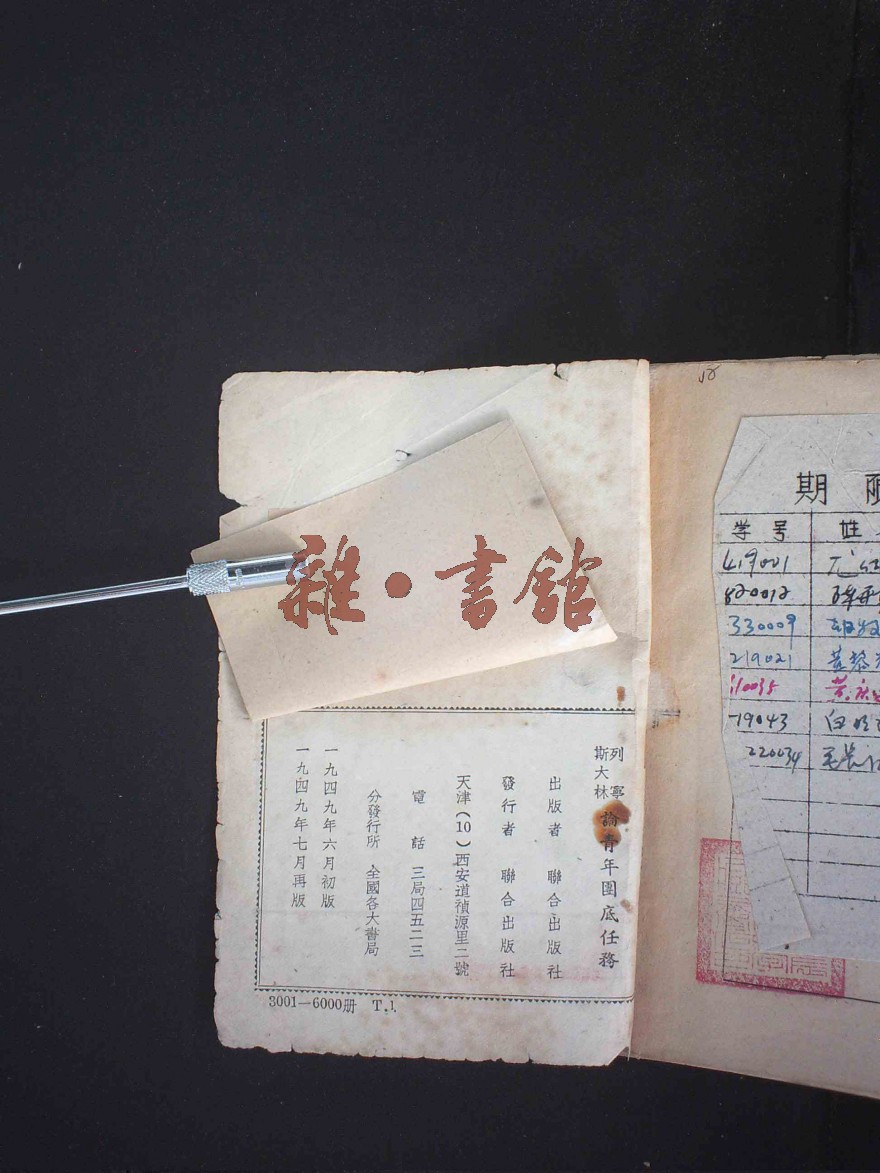 雜·書館
列寧
斯大林
論青年團底任務
出版者 聯合出版社
發行者 聯合出版社
天津（10）西安道禎源里二號
電話 三局四五二三
分發行所 全國各大書局
一九四九年六月初版
一九四九年七月再版
3001—6000册 T.1.
期
学号 姓
419001
820012
330009
219021 黃
10035 黄
19043 白
220034 毛